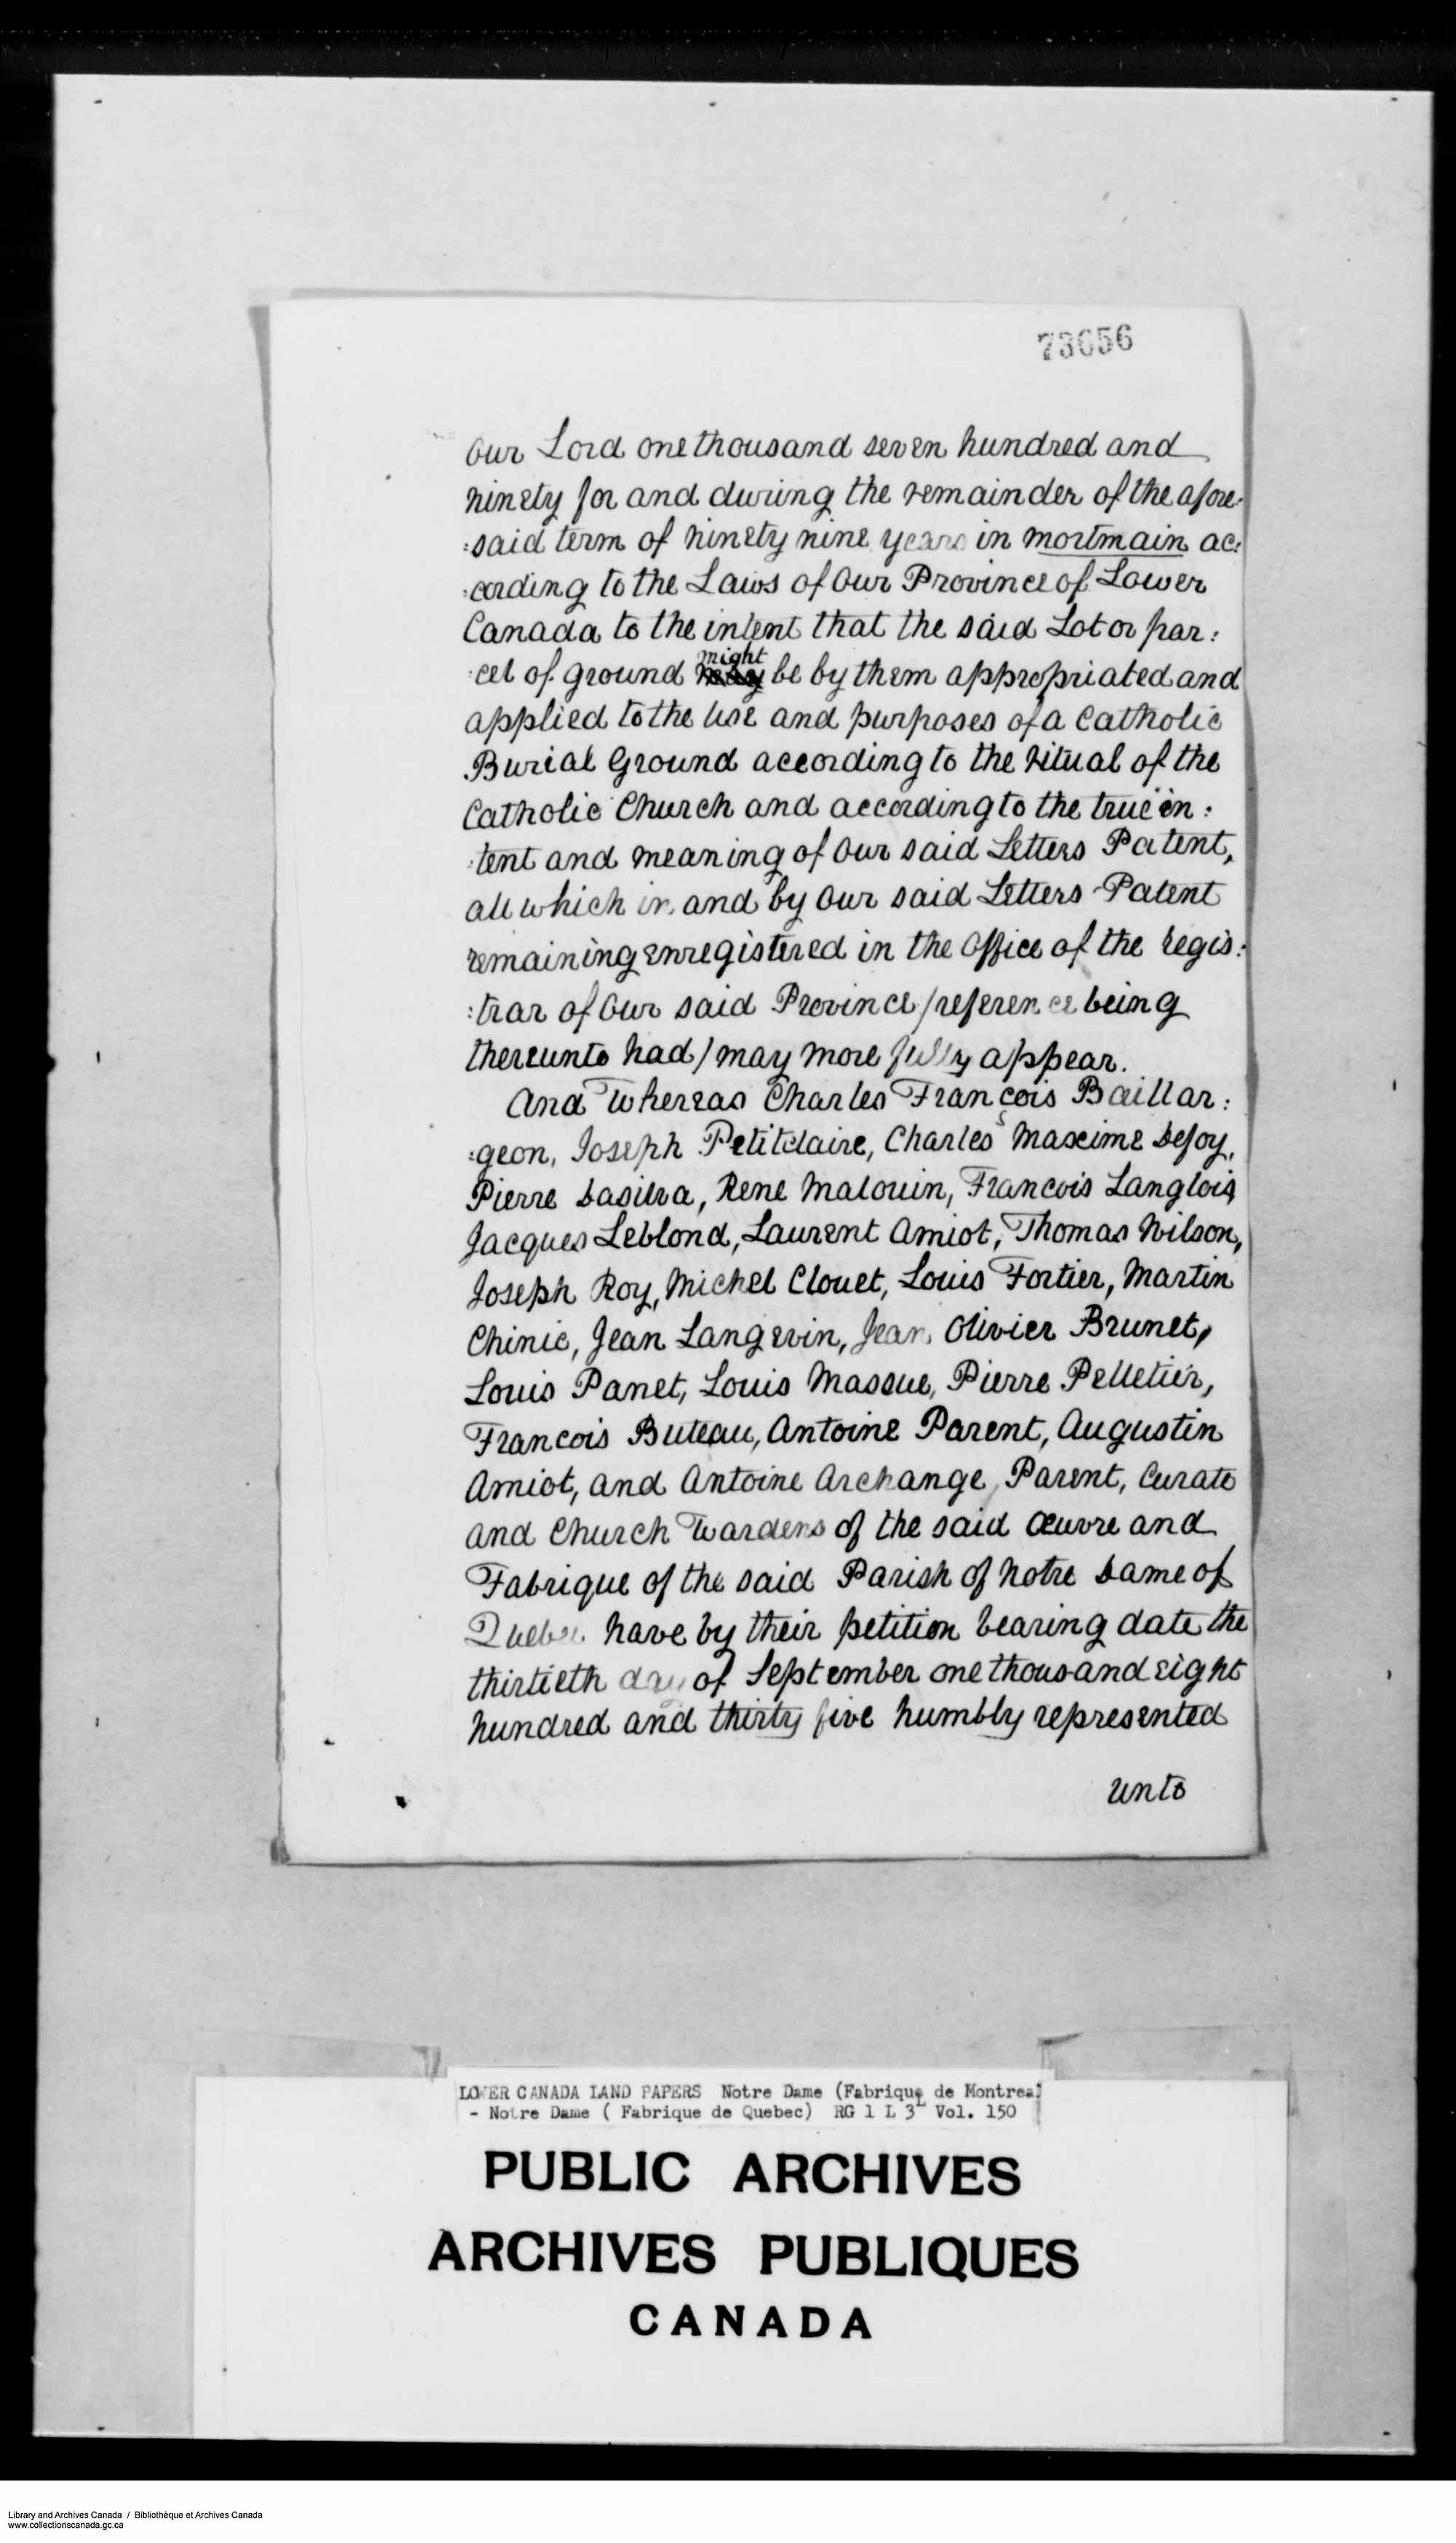 73656
Our Lord one thousand seven hundred and
ninety for and during the remainder of the afore:
:said term of ninety nine years in mortmain ac:
:cording to the Laws of Our Province of Lower
Canada to the intent that the said Lot or par:
:cel of ground might be by them appropriated and
applied to the use and purposes of a Catholic
Burial Ground according to the ritual of the
Catholic Church and according to the true in:
:tent and meaning of Our said Letters Patent,
all which in and by Our said Letters Patent
remaining enregistered in the Office of the Regis:
:trar of Our said Province /reference being
thereunto had/ may more fully appear.
And Whereas Charles François Baillar:
:geon, Joseph Petitclaire, Charles Maxime Defoy,
Pierre Dasilva, Rene Malouin, Francois Langlois,
Jacques Leblond, Laurent Amiot, Thomas Wilson,
Joseph Roy, Michel Clouet, Louis Fortier, Martin
Chinic, Jean Langevin, Jean Olivier Brunet,
Louis Panet, Louis Massue, Pierre Pelletier,
Francois Buteau, Antoine Parent, Augustin
Amiot, and Antoine Archange Parent, Curate
and Church Wardens of the said Œuvre and
Fabrique of the said Parish of Notre Dame of
Quebec have by their petition bearing date the
thirtieth day of September one thousand eight
hundred and thirty five humbly represented
unto
LOWER CANADA LAND PAPERS Notre Dame (Fabrique de Montreal)
- Notre Dame ( Fabrique de Quebec) RG 1 L 3L Vol. 150
PUBLIC ARCHIVES
ARCHIVES PUBLIQUES
CANADA
Library and Archives Canada / Bibliothèque et Archives Canada
www.collectionscanada.gc.ca